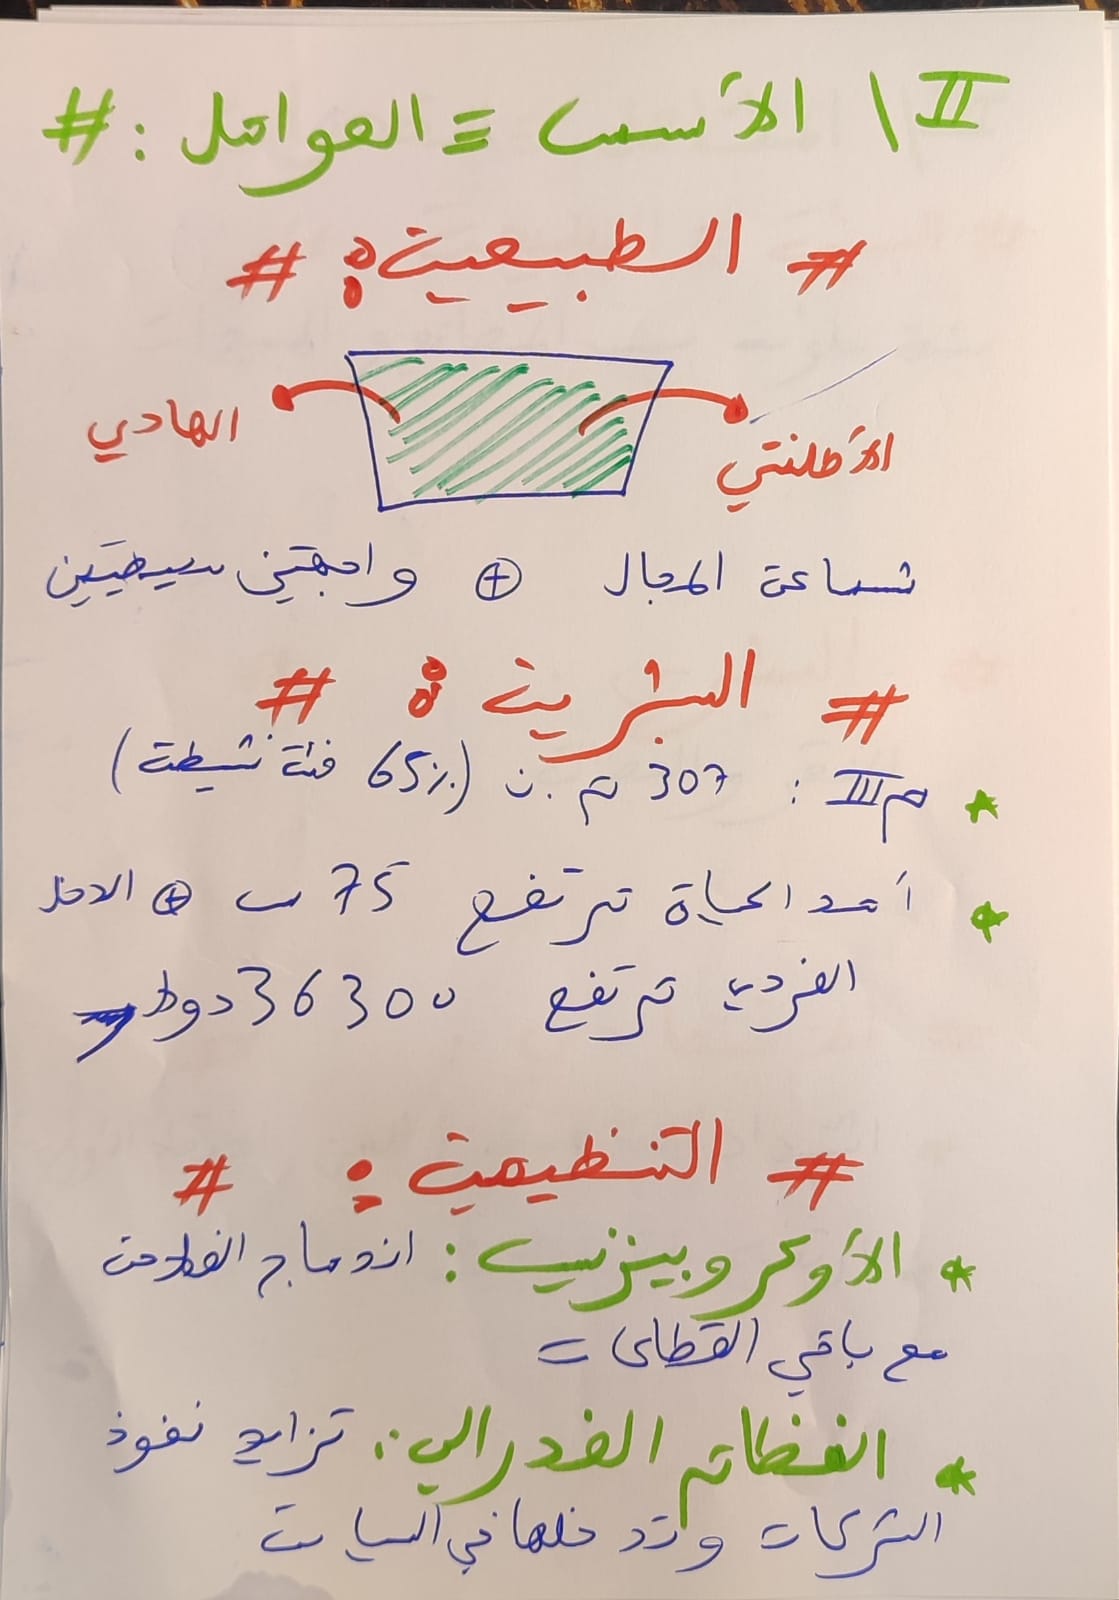 II \ الأسس = العوامل : #
# الطبيعية : #
الهادي
الأطلنتي
شساعة المجال ⊕ واجهتين سيحيتين
# البشرية : #
* مIII : 307 م.ن (65٪ فئة نشيطة)
* أمد الحياة ترتفع 75 س ⊕ الدخل
الفردي ترتفع 36300 دولار
# التنظيمية : #
* الأوكروبيزنيس : اندماج الفلاحة
مع باقي القطاعات
* النظام الفدرالي : تزايد نفوذ
الشركات وتدخلها في السياسة